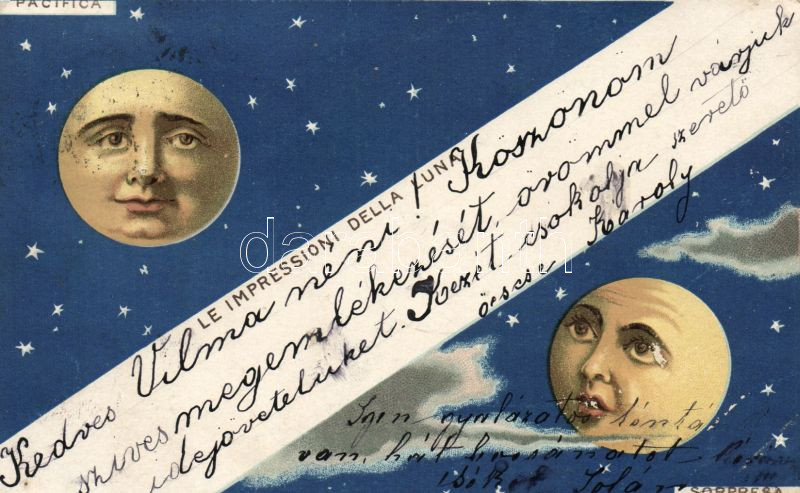 PACIFICA
LE IMPRESSIONI DELLA LUNA
Kedves Vilma néni! Köszönöm
szíves megemlékezését, örömmel várjuk
idejövetelüket. Kezét csókolja szerető
öcscse Károly
Igen gyalázatos
van, hát bocsánatot
SORPRESA